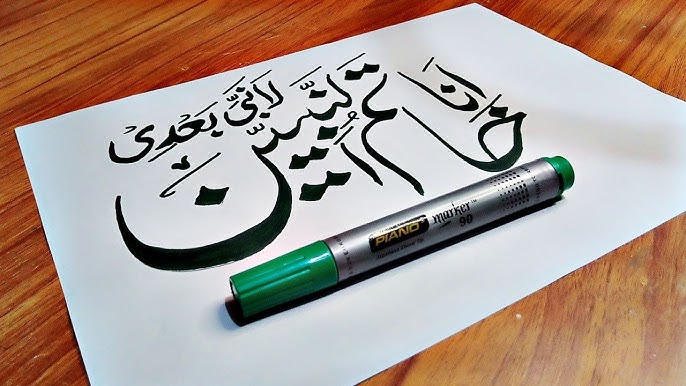 انا خاتم النبیین
لَا نَبِیَّ بَعْدِیْ
PIANO marker
90